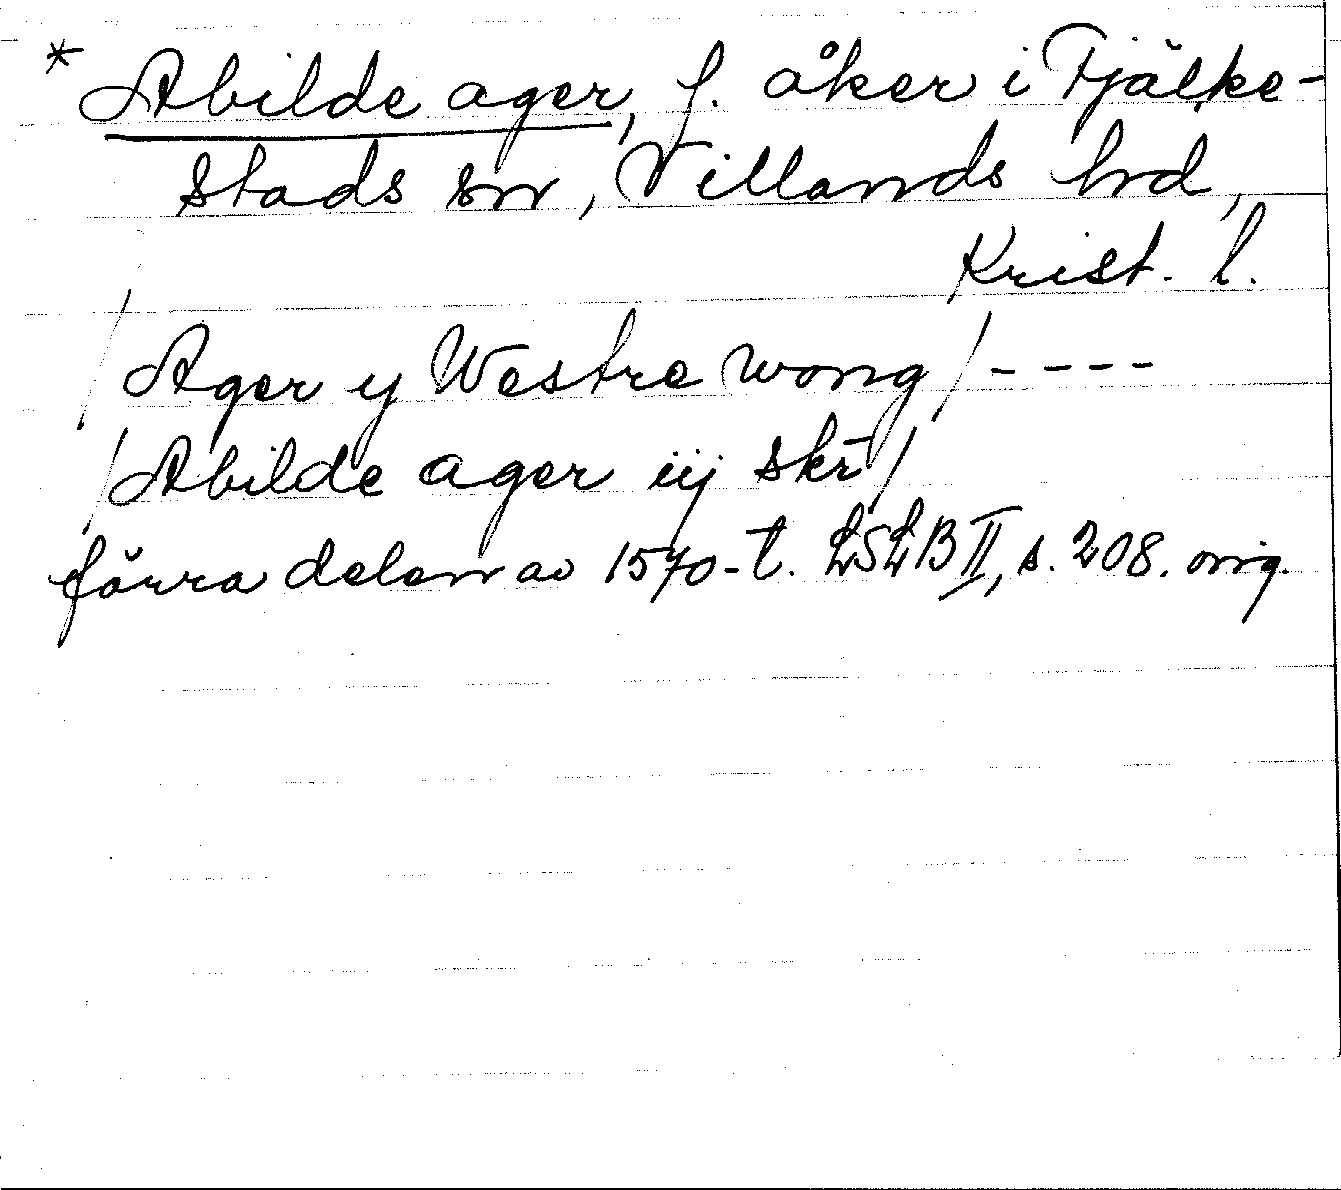 * Abilde ager, f. åker i Fjälke-
stads sn, Villands hd,
Krist. l.
/Ager y Westre wong/ ----
/Abilde ager iij skr̄/
förra delen av 1570-t. LSLB II, s. 208. orig.